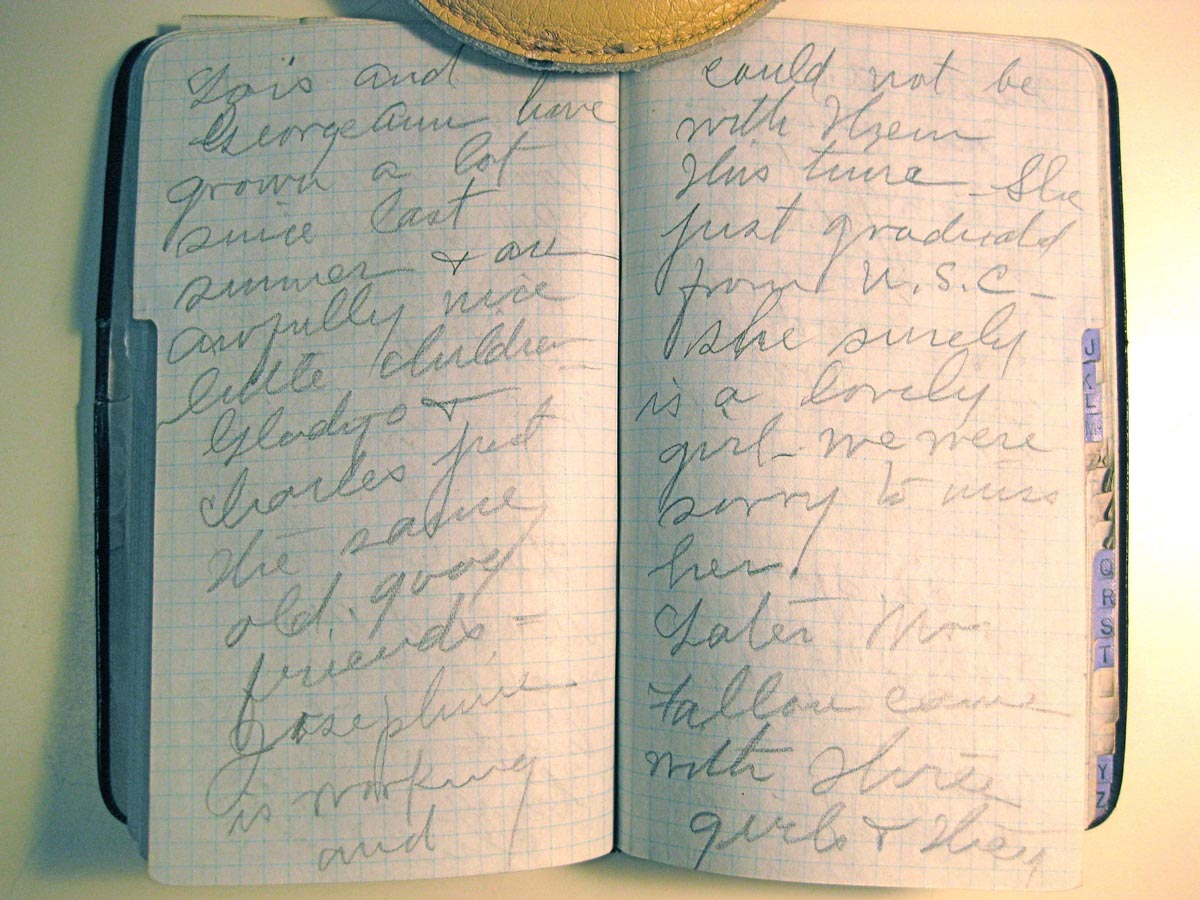 Lois and
GeorgeAnn have
grown a lot
since last
summer & are
awfully nice
little children –
Gladys &
Charles just
the same
old, good
friends, –
Josephine
is working
and
could not be
with them
this time – She
just graduated
from U.S.C –
she surely
is a lovely
girl – we were
sorry to miss
her.
Later Mr
Fallon came
with three
girls & they
J
K
L
M
Q
R
S
T
Y
Z